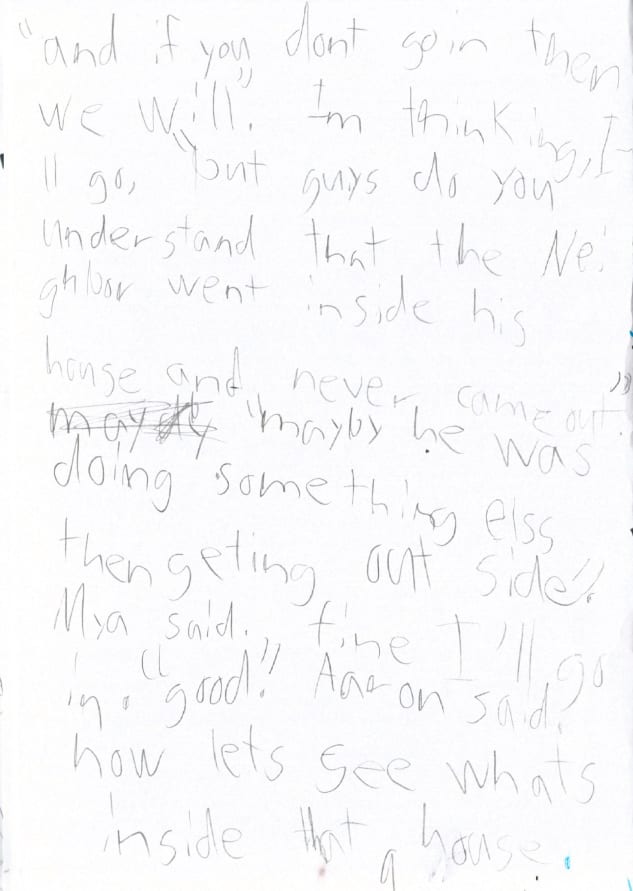 "and if you dont go in then
we will". Im thinking, I-
ll go, "but guys do you
understand that the Nei
ghbor went inside his
house and never came out."
"mayby he was
doing something elss
then geting out side".
Mya said. fine I'll go
in. "good". Aaron said.
now lets see whats
inside that a house.